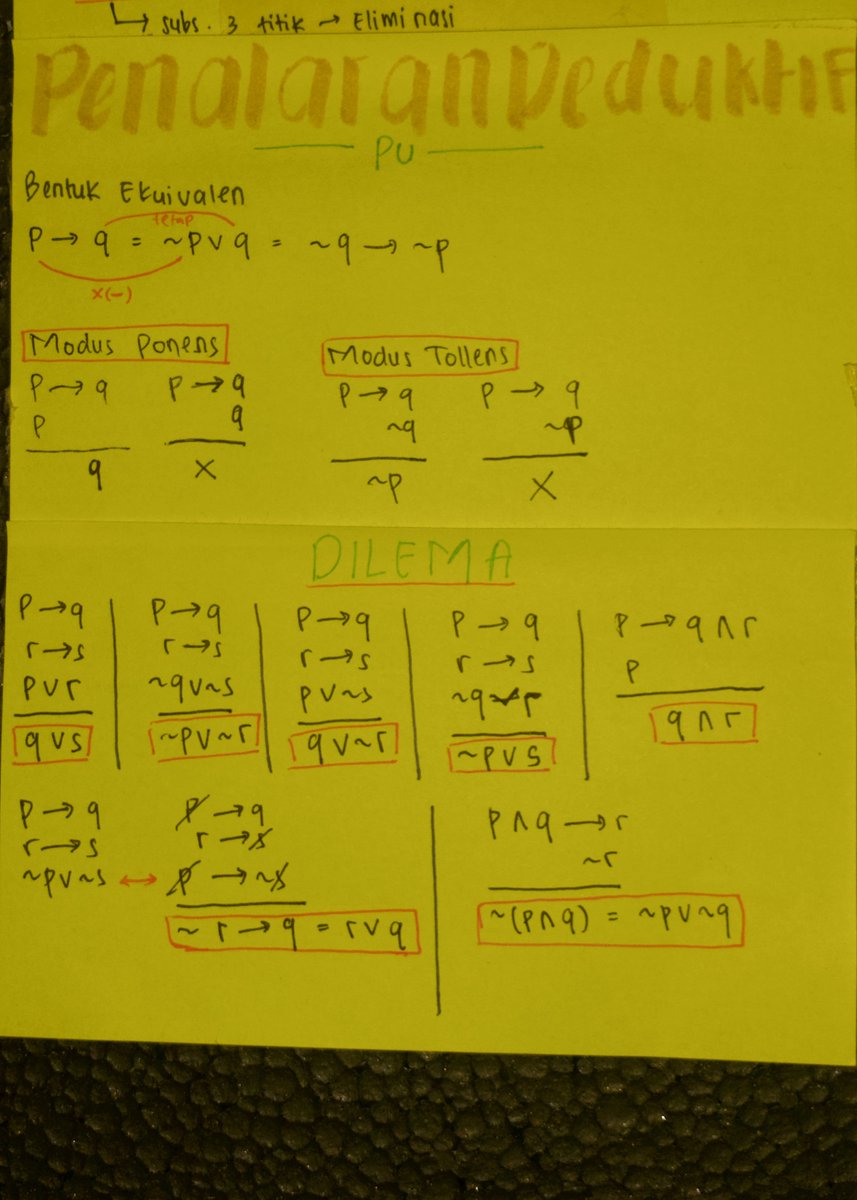 ↳ subs. 3 titik → Eliminasi
Penalaran Deduktif
PU
Bentuk Ekuivalen
tetap
P → q = ~p ∨ q = ~q → ~p
x(-)
Modus Ponens
P → q
P
q
P → q
q
X
Modus Tollens
P → q
~q
~p
P → q
~p
X
DILEMA
P → q
r → s
p ∨ r
q ∨ s
P → q
r → s
~q ∨ ~s
~p ∨ ~r
P → q
r → s
p ∨ ~s
q ∨ ~r
P → q
r → s
~q ∨ r
~p ∨ s
P → q ∧ r
P
q ∧ r
P → q
r → s
~p ∨ ~s ↔ p → ~s
p → q
r → s
~ r → q = r ∨ q
p ∧ q → r
~r
~(p ∧ q) = ~p ∨ ~q